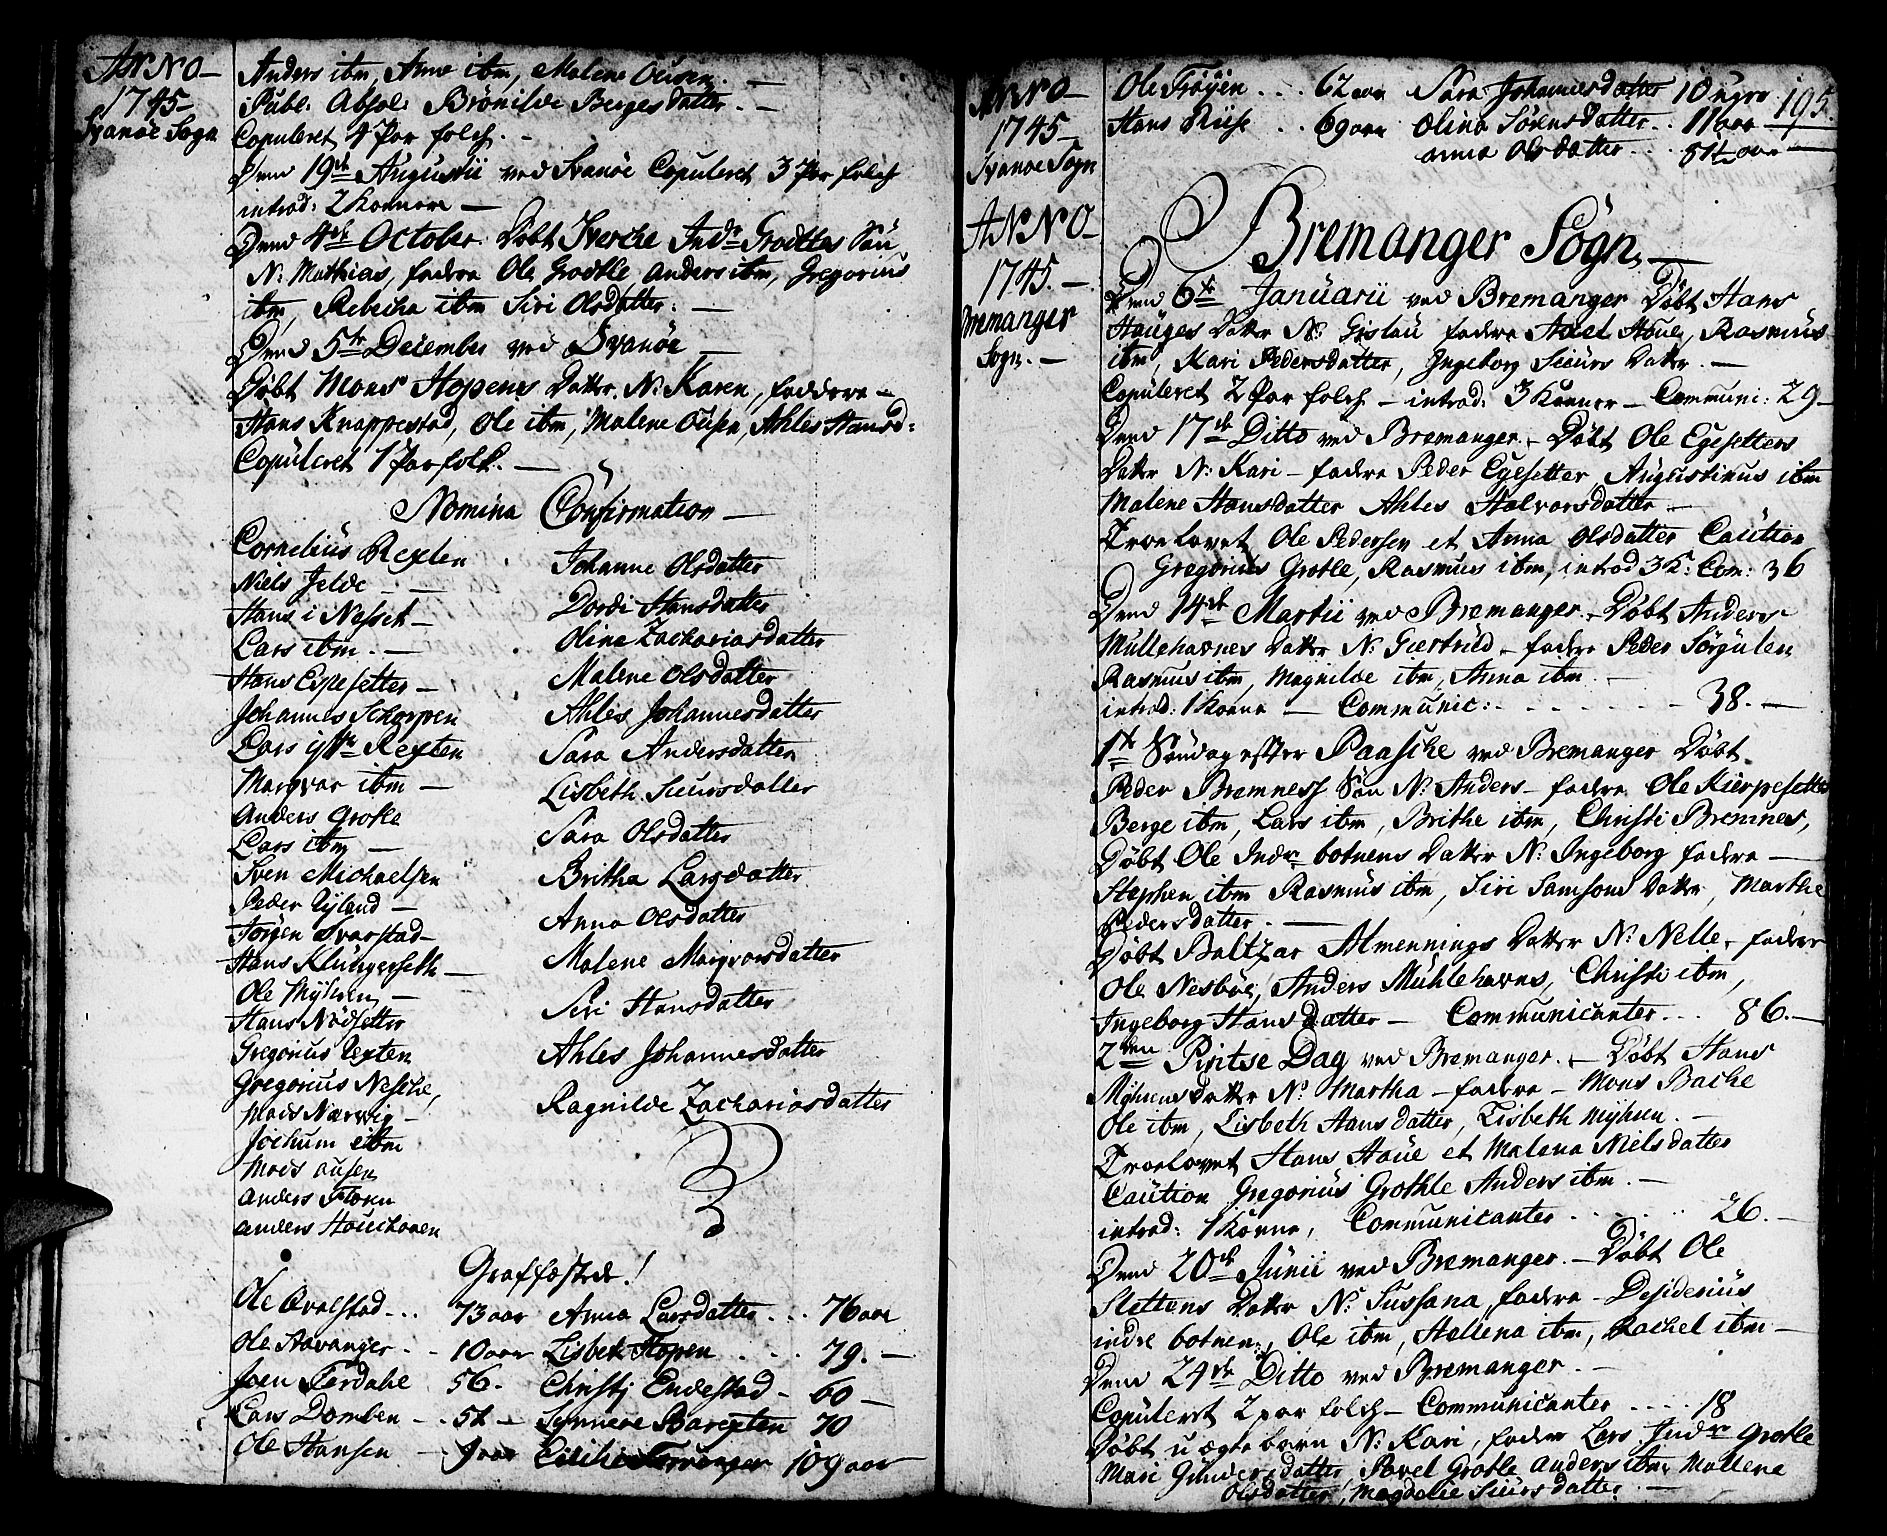 ANNO
1745
Svanøe Sogn
Anders ibm, Anne ibm, Malene Ousen.
Publ: Absol: Brønilde Bergesdatter.
Copuleret 4 Par folch.
Dend 19de Augustii ved Svanøe Copuleret 3 Par folch
introd: 2 Konner
Dend 4de October. Døbt Indr Søn
N: Mathias, fadre Ole Grotle, Anders ibm, Gregorius
ibm, Rebecha ibm Siri Olsdatter.
Dend 5te December ved Svanøe
Døbt Mons Hopens Datter N: Karen, faddere
Hans Knappestad, Ole ibm, Malene Ousen, Ahles Hansd:
Copuleret 1 Par folk.
Nomina Confirmation
Cornelius Rexten
Niels Jelde
Hans i Nesset
Lars ibm.
Hans Espesetter
Johannes Schorpen
Lars Rexten
Margvar ibm
Anders Grotle
Lars ibm
Sven Michaelsen
Peder Nyland
Jørgen Svarstad
Hans Klungerseth
Ole Myhren
Hans Nødsetter
Gregorius Rexten
Gregorius Nesche,
Mads Nærvig
Jochum ibm
Mads Ousen
Anders Floren
Anders Houchoven
Johanne Olsdatter
Dordi Hansdatter
Oline Zachariasdatter
Malene Olsdatter
Ahles Johannesdatter
Sara Andersdatter
Lisbeth Siursdatter
Sara Olsdatter
Britha Larsdatter
Anna Olsdatter
Malene Margvarsdatter
Siri Hansdatter
Ahles Johannesdatter
Ragnilde Zachariasdatter
Graffæstede!
Ole Qvalstad 73 aar Anna Larsdatter 76 aar
Ole Havanger 10 aar Lisbeth Hopen 79.
Joen Ferdahe 56. Christj Endestad 60
Lars Domben 51 Synneve Barexten 70
Ole Hansen 9 aar 109 aar
ANNO
1745
Svanøe Sogn
Ole Frøyen 62 aar Sara Johannesdatter 10 ugro 195.
Hans Riise 69 aar Olina Sørensdatter 11 aar
Anna Olsdatter aar
ANNO
1745.
Bremanger
Sogn.
Bremanger Sogn.
Dend 6te Januarii ved Bremanger Døbt Hans
Hauges Datter N: Gislau fadre Axel Houe, Rasmus
ibm, Kari Pedersdatter, Ingeborg Siurs Datter.
Copuleret 2 Par folch introd: 3 Konner Communi: 29
Dend 17de Ditto ved Bremanger. Døbt Ole Egesetters
Datter N: Kari fadre Peder Egesetter Augustinus ibm
Malene Hansdatter Ahles Halvorsdatter
Troelovet Ole Pedersen et Anna Olsdatter Caution
Gregorius Grotle, Rasmus ibm, introd 3 K: Com: 36
Dend 14de Martii ved Bremanger. Døbt Anders
Mullehavnes Datter N: Giertrud fadre Peder Sørgulen
Rasmus ibm, Magnilde ibm, Anna ibm
introd: 1 Konne Communic: 38.
1te Søndag effter Paasche ved Bremanger Døbt
Peder Bremness Søn N: Anders fadre Ole Kierpesetter
Berge ibm, Lars ibm, Brithe ibm, Christi Bremnes,
Døbt Ole Indr botnens Datter N: Ingeborg fadre
Stephen ibm Rasmus ibm, Siri Samsons Datter, Marthe
Pedersdatter.
Døbt Baltzar Almennings Datter N: Nelle, fadre
Ole Nesbøe, Anders Muhlehavns, Christi ibm,
Ingeborg Hansdatter Communicanter 86.
2den Pintse Dag ved Bremanger. Døbt Hans
Myhrensdatter N: Martha fadre Mons Bache
Ole ibm, Lisbeth Hansdatter, Lisbeth Myhren.
Troelovet Hans Houe et Malena Nielsdatter
Caution Gregorius Grothle Anders ibm.
introd: 1 Konne, Communicanter 26.
Dend 20de Junii ved Bremanger. Døbt Ole
Slettens Datter N: Sussana fadre Desiderius
indre botnen, Ole ibm, Hellena ibm, Rachel ibm
Dend 24de Ditto ved Bremanger.
Copuleret 2 par folch Communicanter 18
Døbt uægte barn N: Kari, fader Lars Indr Grotle
Mari Gundersdatter, Povel Grotle Anders ibm Mallene
Olsdatter, Magdelie Siursdatter.